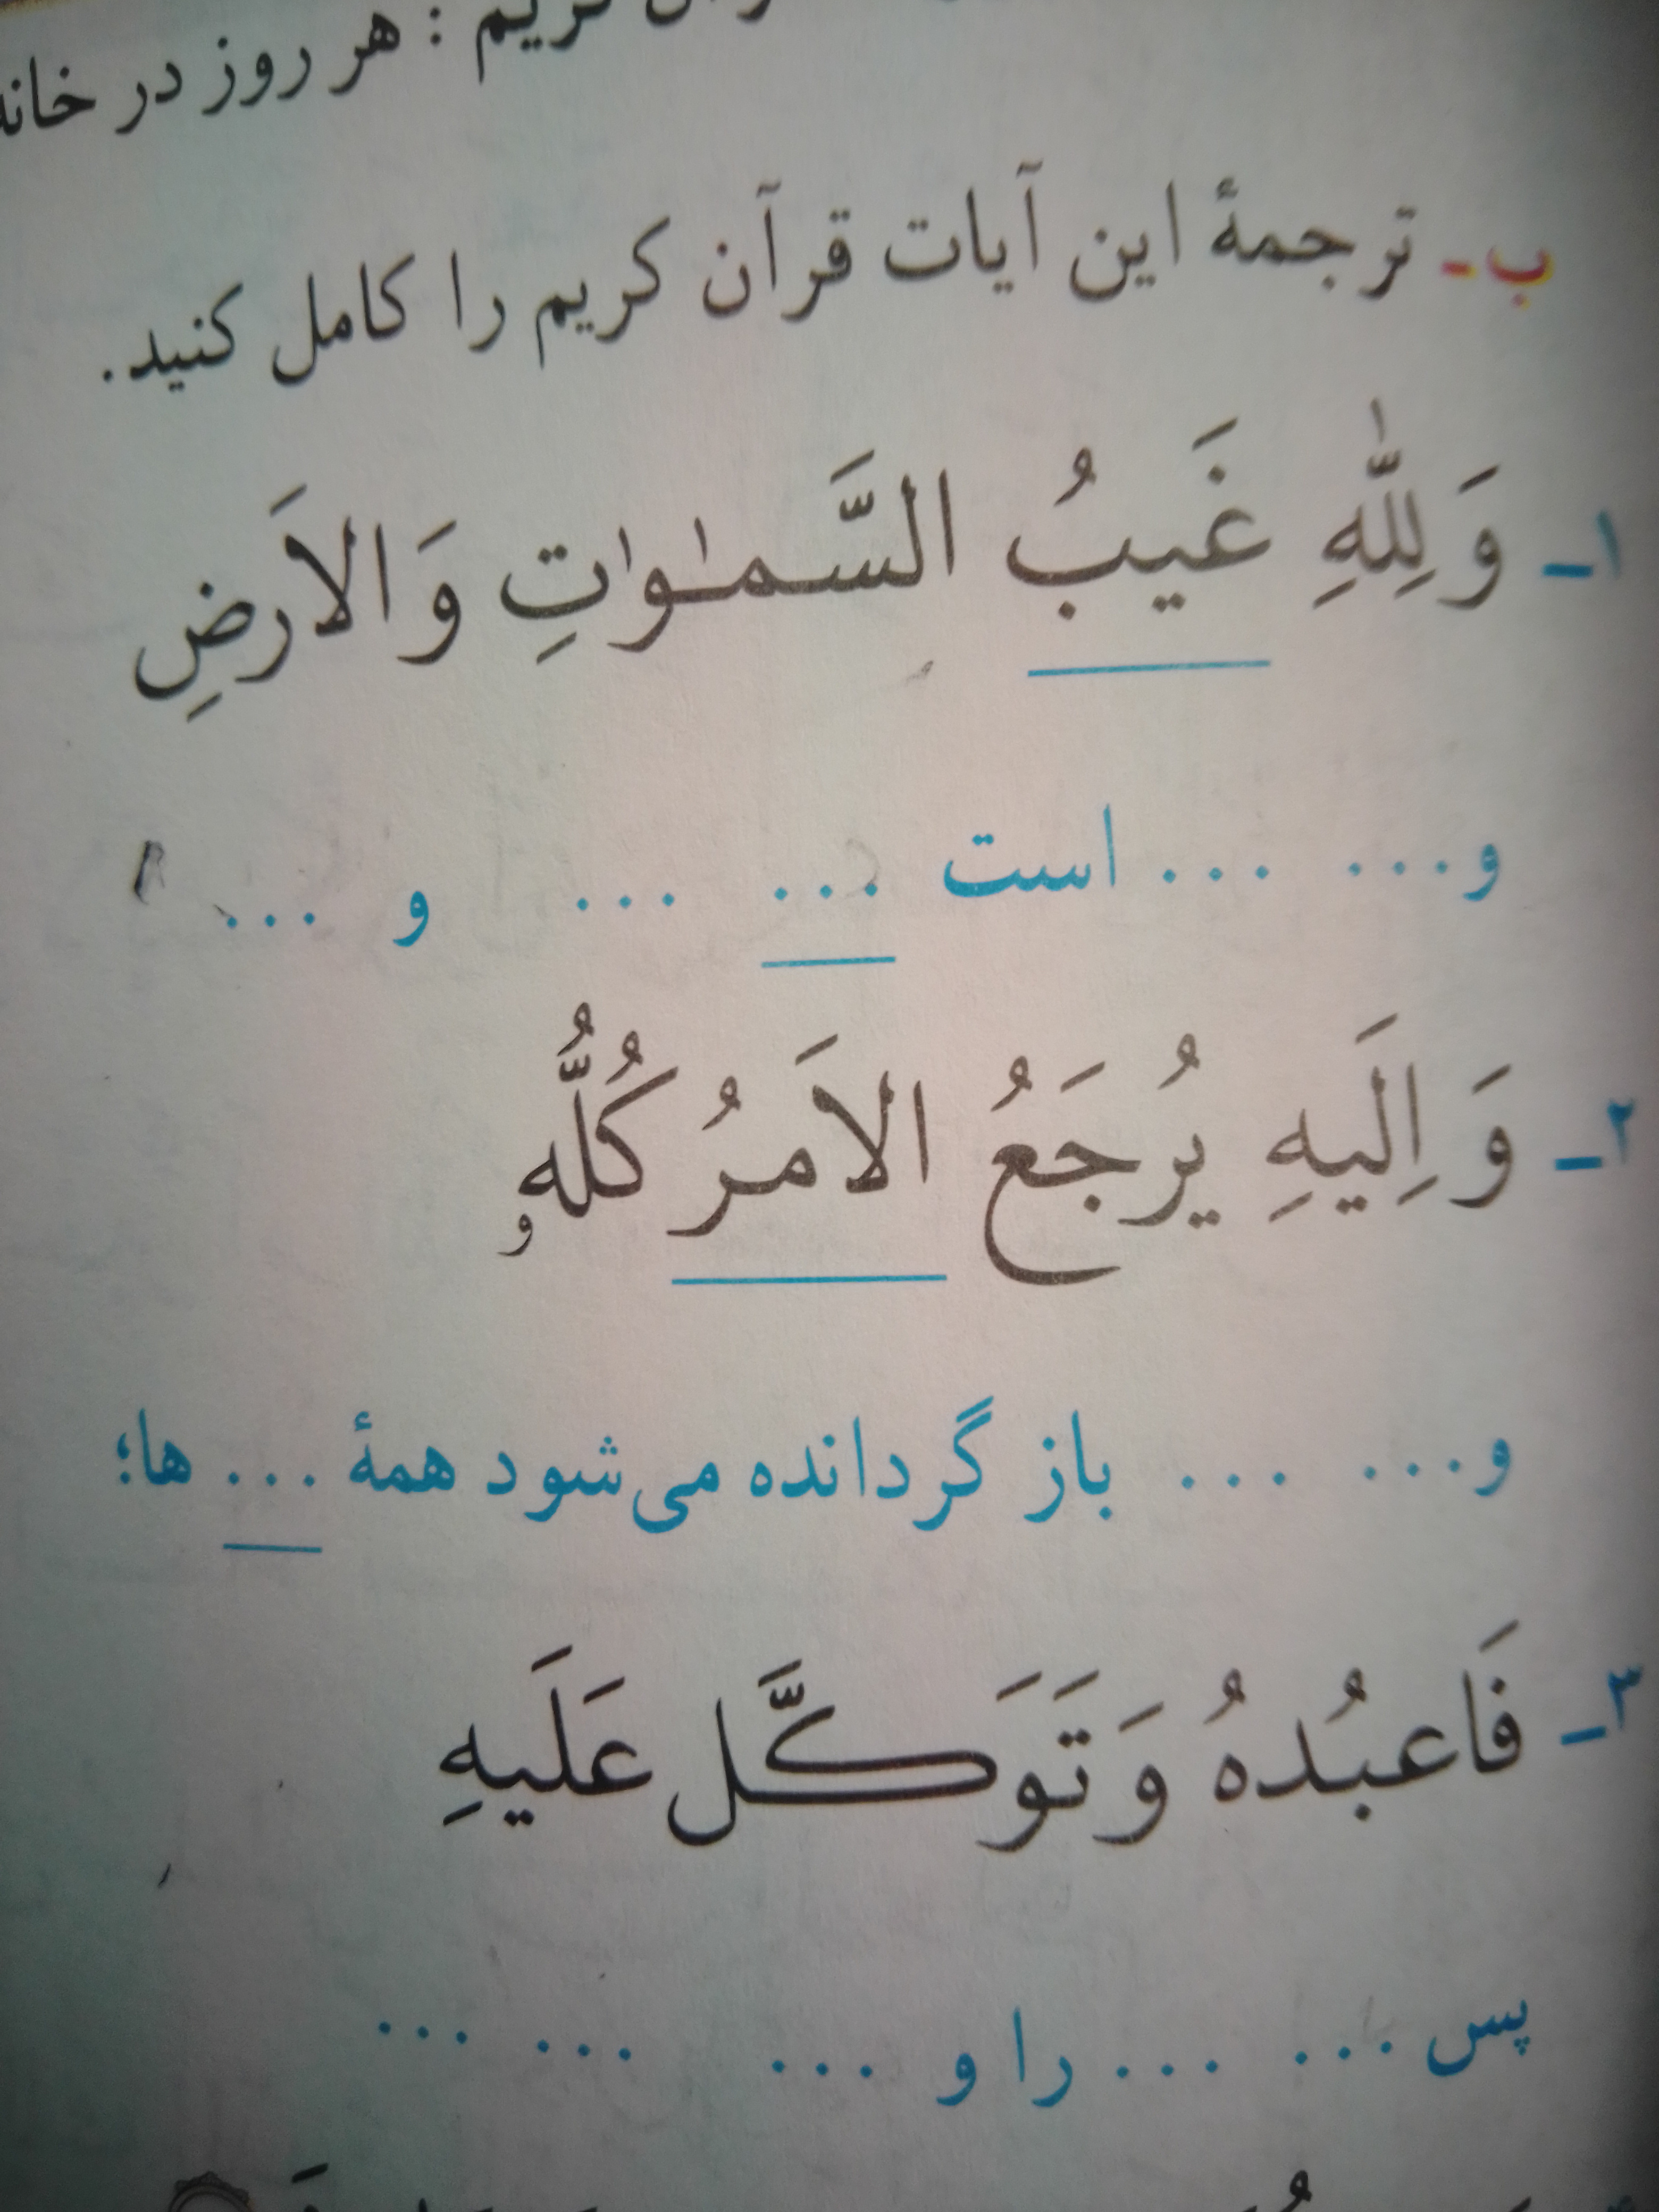 کریم : هر روز در خانه
ب- ترجمهٔ این آیات قرآن کریم را کامل کنید.
۱- وَ لِلّٰهِ غَیبُ السَّمـٰوٰاتِ وَ الاَرضِ
و... ... است ... ... و ...
۲- وَ اِلَیهِ یُرجَعُ الاَمرُ کُلُّهُو
و... ... باز گردانده می‌شود همهٔ ... ها؛
۳- فَاعبُدهُ وَ تَوَکَّل عَلَیهِ
پس ... ... را و ... ... ...